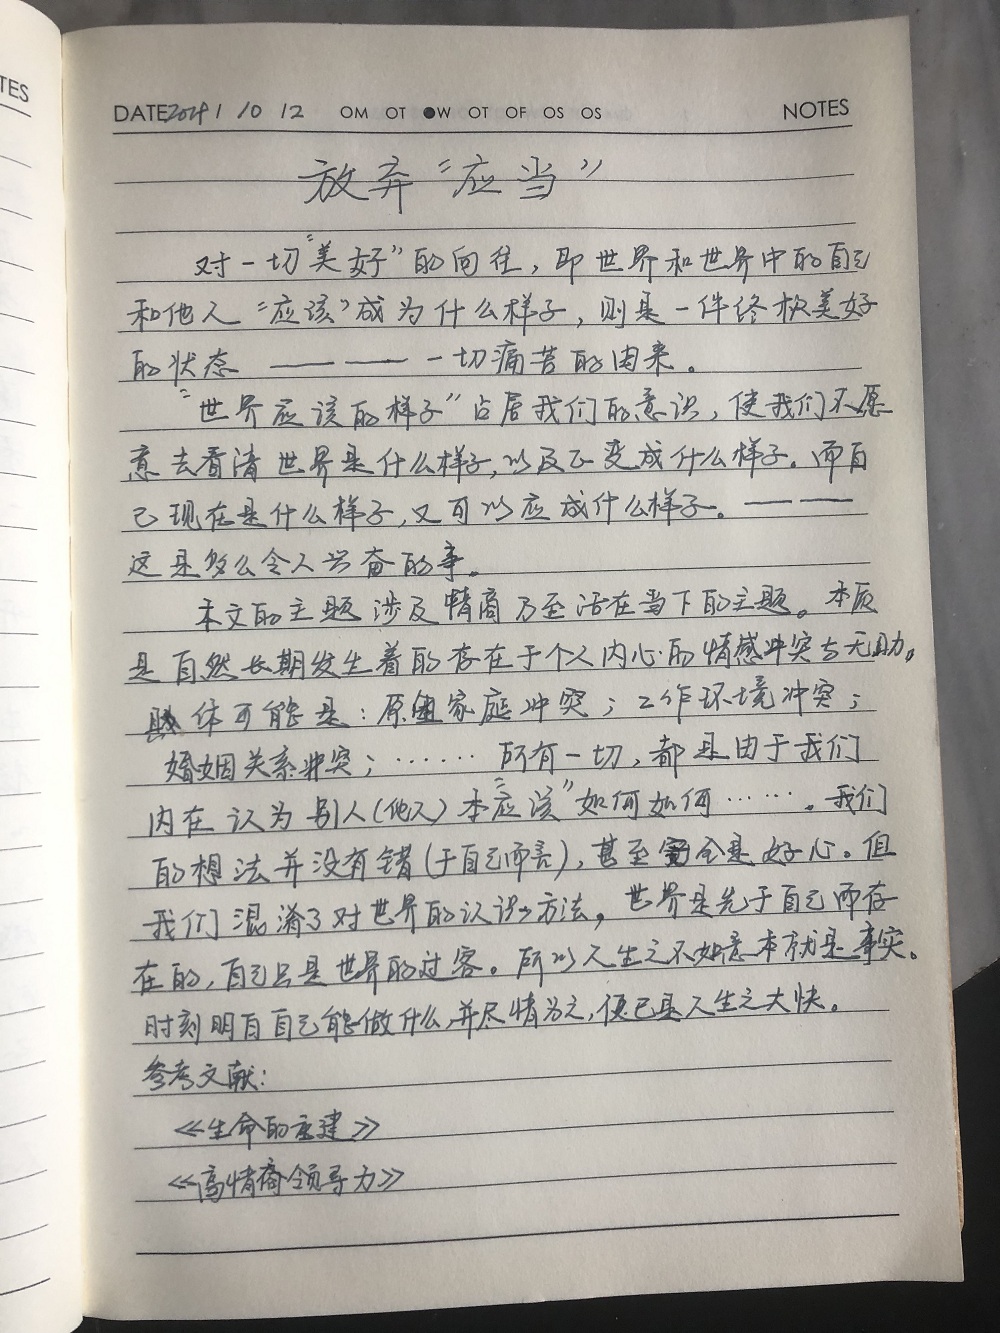 TES
DATE 2019 / 10 / 12 OM OT ●W OT OF OS OS NOTES
放弃“应当”
对一切“美好”的向往，即世界和世界中的自己
和他人“应该”成为什么样子，则是一件终极美好
的状态 ——————一切痛苦的由来。
“世界应该的样子”占居我们的意识，使我们不愿
意去看清世界是什么样子，以及正变成什么样子。而自
己现在是什么样子，又可以应成什么样子。————
这是多么令人兴奋的事。
本文的主题涉及情商乃至活在当下的主题。本质
是自然长期发生着的存在于个人内心的情感冲突与无助。
具体可能是：原生家庭冲突；工作环境冲突；
婚姻关系冲突；……所有一切，都是由于我们
内在认为别人（他人）本“应该”如何如何……。我们
的想法并没有错（于自己而言），甚至部分是好心。但
我们混淆了对世界的认识方法。世界是先于自己而存
在的，自己只是世界的过客。所以人生之不如意本就是事实。
时刻明白自己能做什么并尽情为之，便已是人生之大快。
参考文献：
《生命的重建》
《高情商领导力》